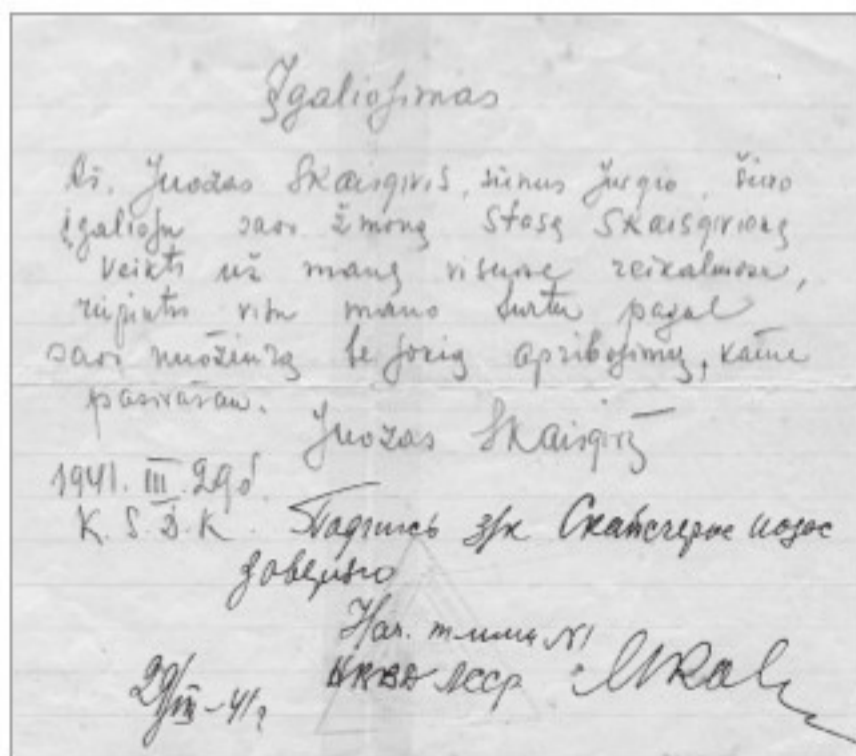 Įgaliojimas
Aš, Juozas Skaisgiris, sūnus Jurgio, šiuo
įgalioju savo žmoną Stasę Skaisgirienę
veikti už mane visuose reikaluose,
rūpintis visu mano turtu pagal
savo nuožiūrą be jokių apribojimų, kame
pasirašau.
Juozas Skaisgirys
1941. III. 29 d.
K. S. D. K. Подпись з/к Скайсгирос Иозос
заверяю
Нач. тюрьмы №1
НКВД ЛССР
29/III-41г